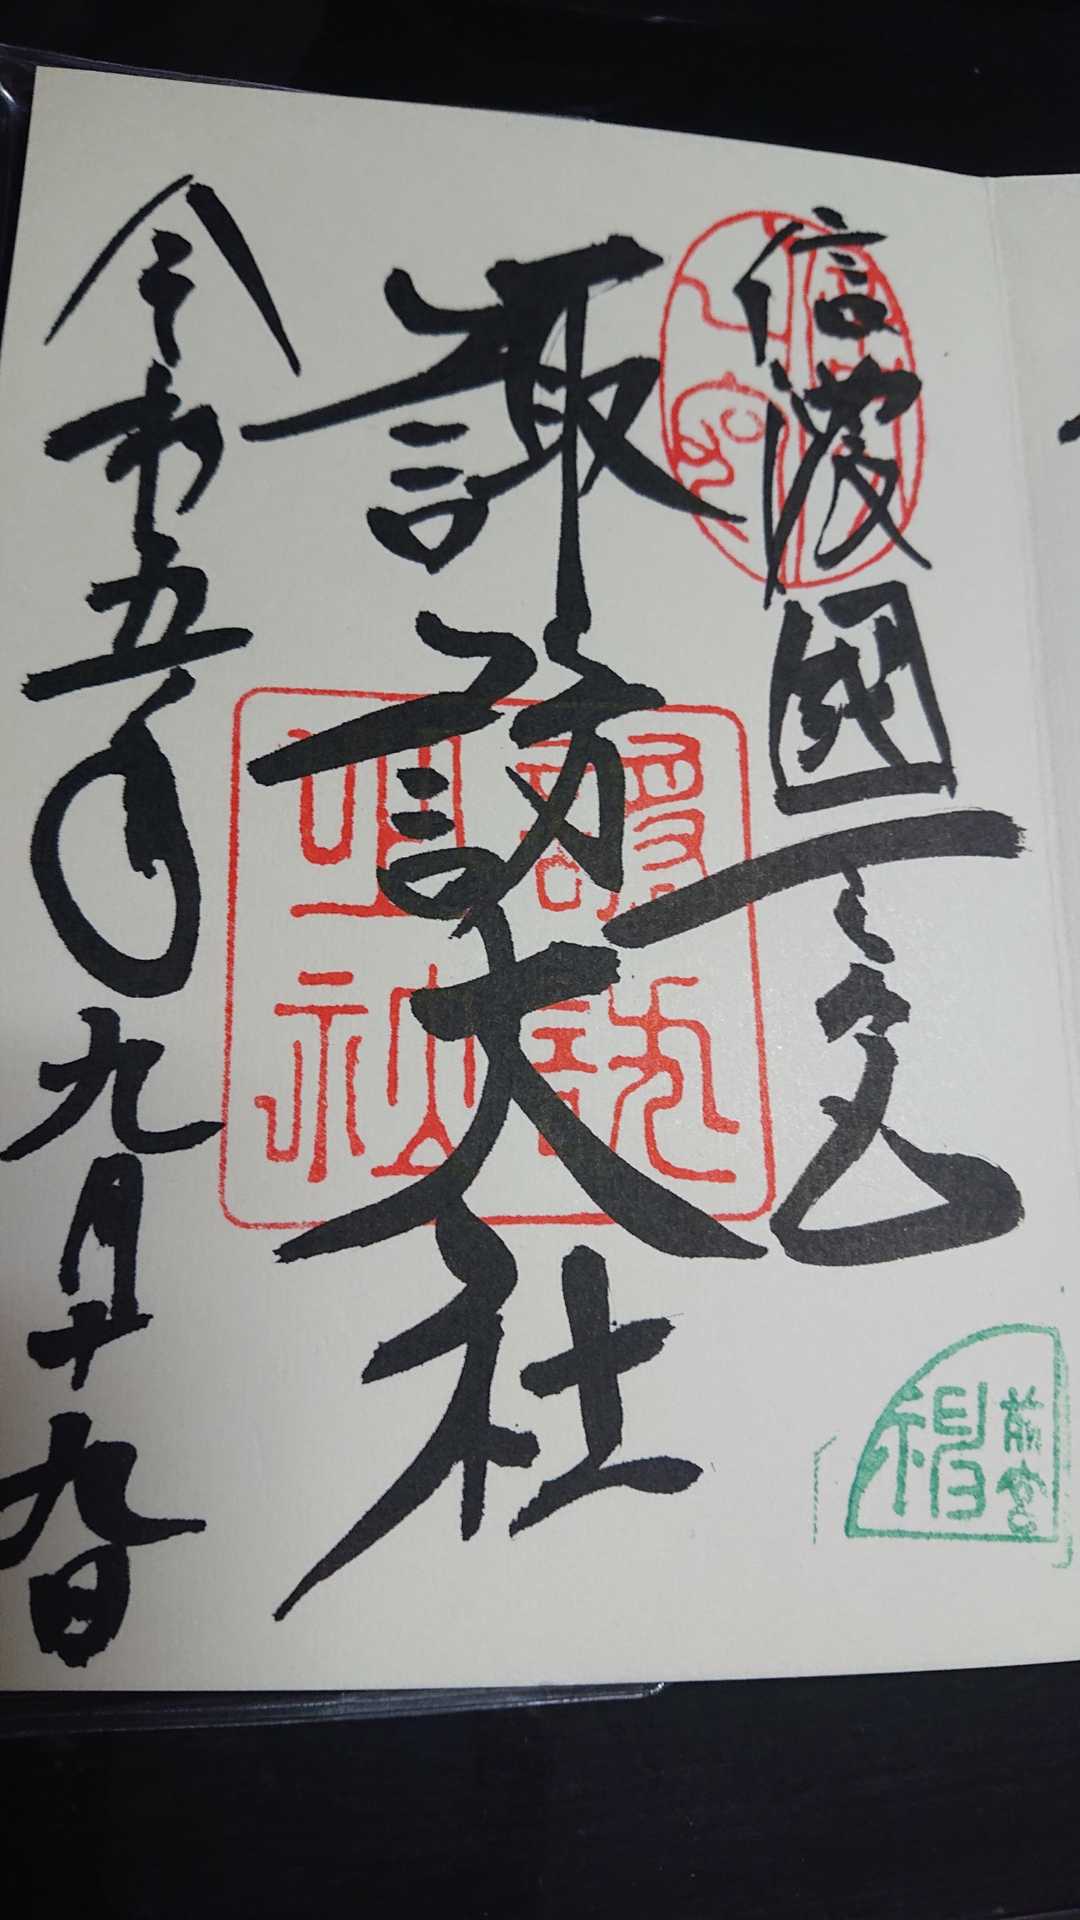 信濃國一之宮
諏訪大社
令和五年九月十九日
前宮